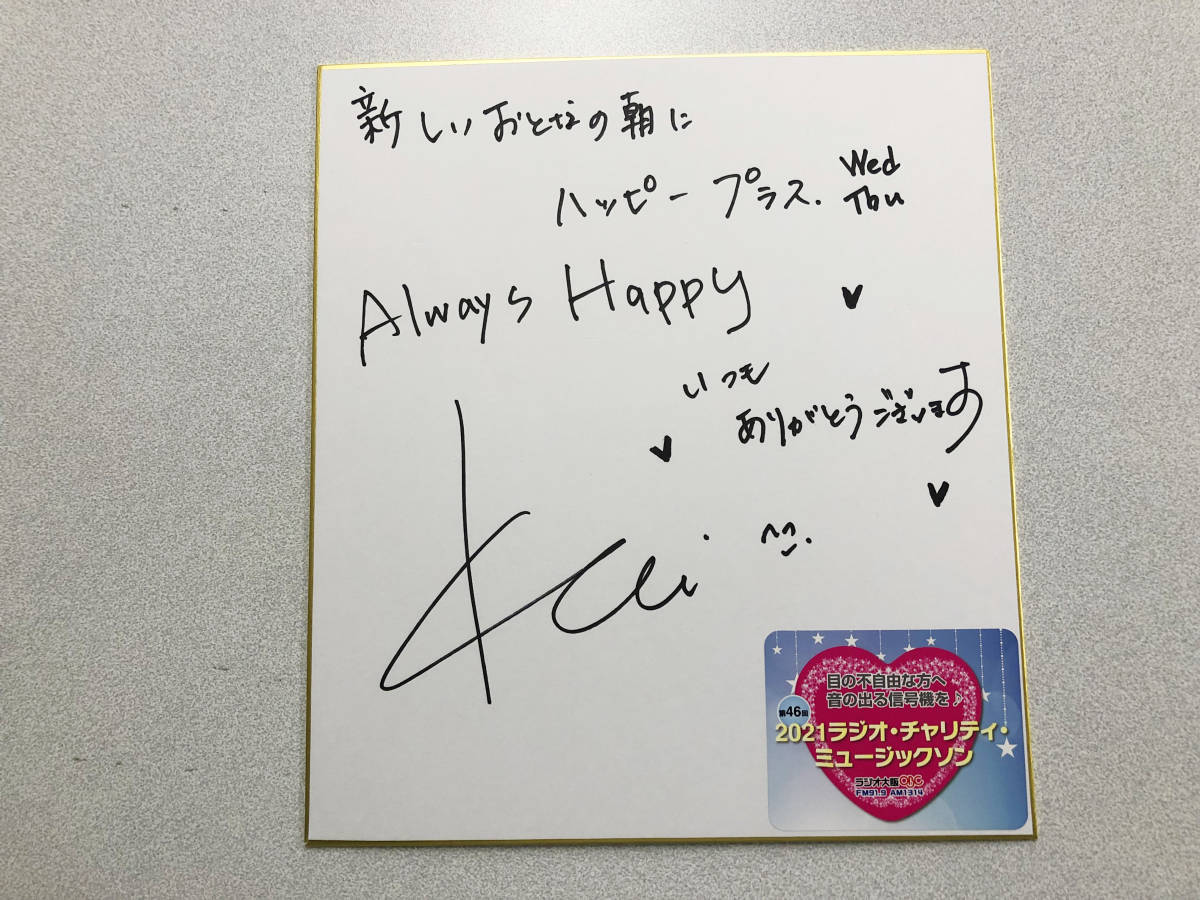 新しいおとなの朝に
ハッピープラス. Wed Thu
Always Happy
いつも
ありがとうございます
Kei
目の不自由な方へ
音の出る信号機を♪
第46回
2021ラジオ・チャリティ・
ミュージックソン
ラジオ大阪 OBC
FM91.9 AM1314